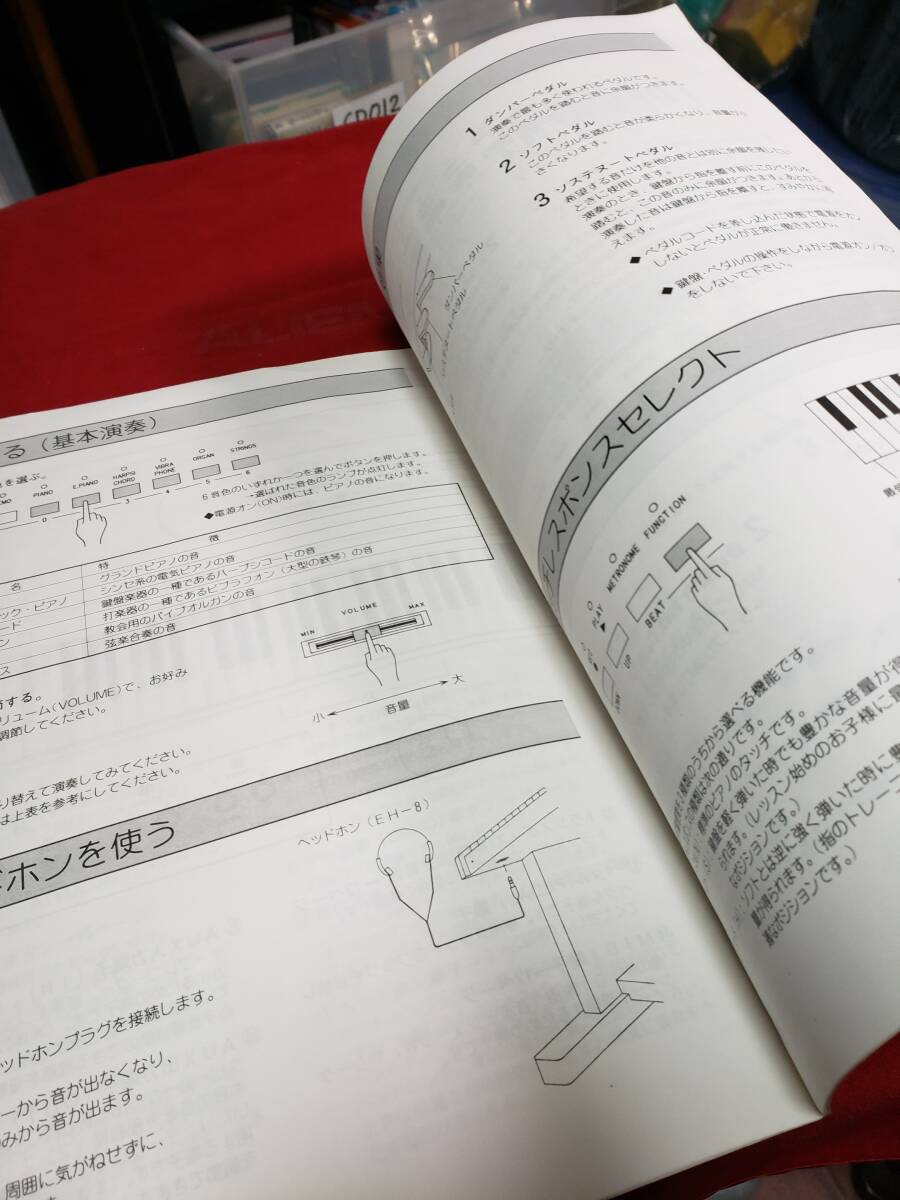 CD012
る（基本演奏）
を選ぶ。
PIANO
E.PIANO
HARPSI
CHORD
VIBRA
PHONE
ORGAN
STRINGS
0
3
4
5
6
6音色のいずれか一つを選んでボタンを押します。
・選ばれた音色のランプが点灯します。
◆電源オン（ON）時には、ピアノの音になります。
名
特
徴
グランドピアノの音
シンセ系の電気ピアノの音
鍵盤楽器の一種であるハープシコードの音
打楽器の一種であるビブラフォン（大型の鉄琴）の音
教会用のパイプオルガンの音
弦楽合奏の音
ック・ピアノ
ード
ン
ス
する。
リューム（VOLUME）で、お好み
調節してください。
MIN
VOLUME
MAX
小
音量
大
り替えて演奏してみてください。
は上表を参考にしてください。
ドホンを使う
ヘッドホン（EH−8）
ッドホンプラグを接続します。
ーから音が出なくなり、
のみから音が出ます。
周囲に気がねせずに、
1 ダンパーペダル
演奏で最も多く使われるペダルです。
このペダルを踏むと音に余韻がつきます。
2 ソフトペダル
このペダルを踏むと音が柔らかくなり、音量が小
さくなります。
3 ソステヌートペダル
希望する音だけを他の音とは別に余韻を
ときに使用します。
演奏のとき、鍵盤から指を離す前にこのペダルを
踏むと、この音のみに余韻がつきます。あとから
演奏した音は鍵盤から指を離すと、すみやかに消
えます。
◆ペダルコードを差し込んだ状態で電源をオン
しないとペダルが正常に働きません。
◆鍵盤・ペダルの操作をしながら電源オン/オフ
をしないで下さい。
ダンパーペダル
ソフトペダル
レスポンスセレクト
PLAY
METRONOME
FUNCTION
UP
BEAT
種類のうちから選べる機能です。
の3種類は次の通りです。
標準のピアノのタッチです。
鍵盤を軽く弾いた時でも豊かな音量が得
られます。（レッスン始めのお子様に最
なポジションです。）
ソフトとは逆に強く弾いた時に豊
量が得られます。（指のトレーニ
適なポジションです。）